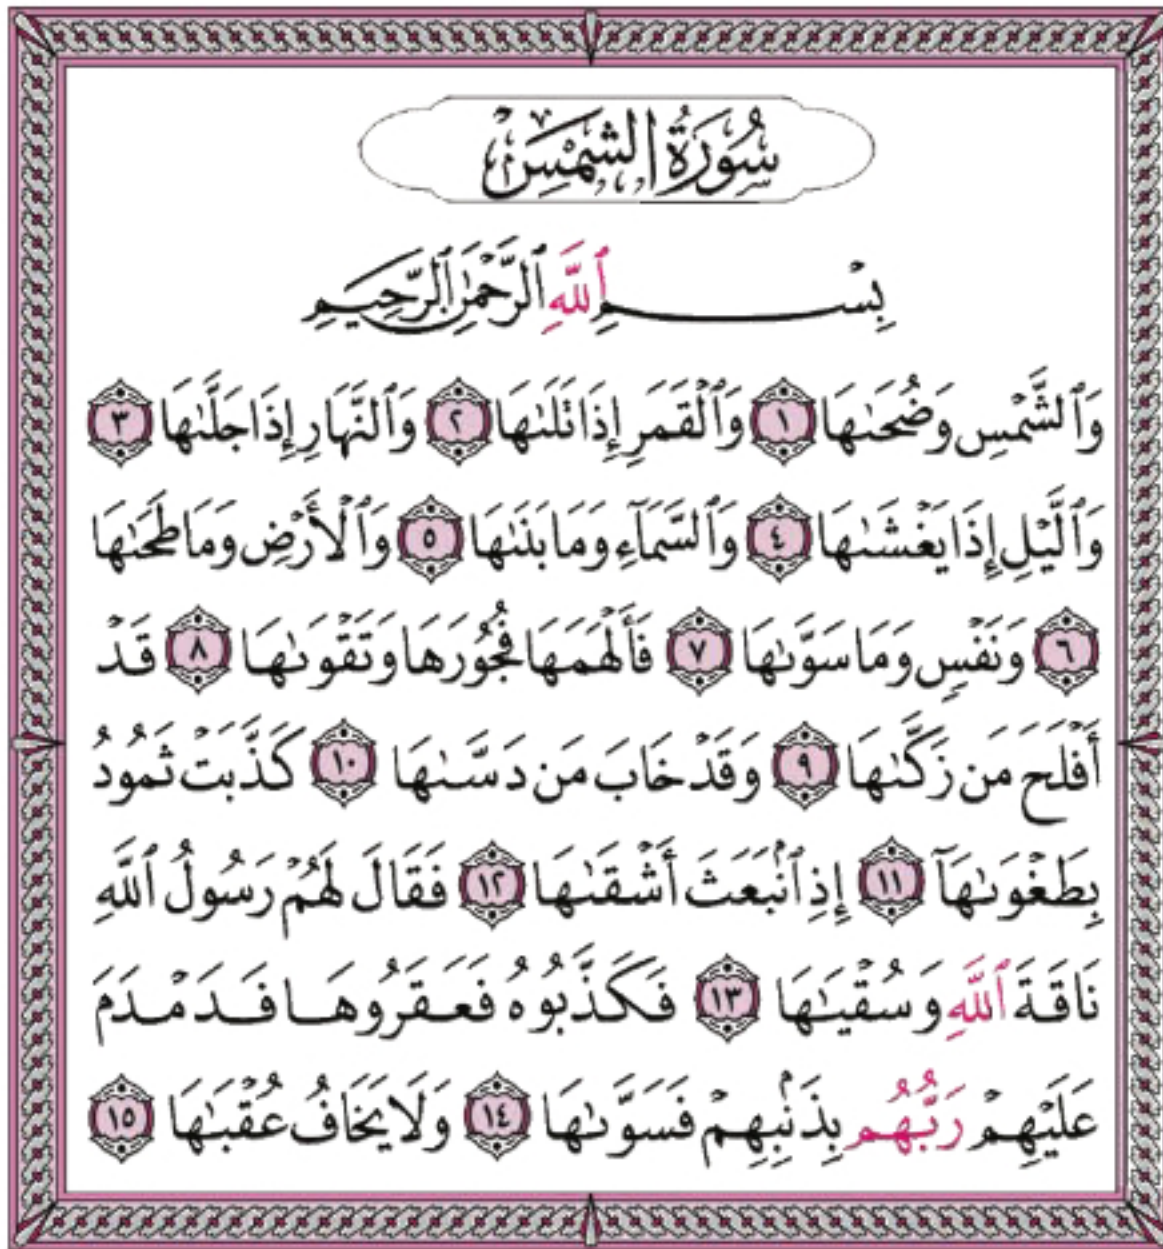 سُورَةُ الشَّمْسِ
بِسْمِ ٱللَّهِ ٱلرَّحْمَٰنِ ٱلرَّحِيمِ
وَٱلشَّمْسِ وَضُحَىٰهَا ١ وَٱلْقَمَرِ إِذَا تَلَىٰهَا ٢ وَٱلنَّهَارِ إِذَا جَلَّىٰهَا ٣
وَٱلَّيْلِ إِذَا يَغْشَىٰهَا ٤ وَٱلسَّمَآءِ وَمَا بَنَىٰهَا ٥ وَٱلْأَرْضِ وَمَا طَحَىٰهَا
٦ وَنَفْسٍ وَمَا سَوَّىٰهَا ٧ فَأَلْهَمَهَا فُجُورَهَا وَتَقْوَىٰهَا ٨ قَدْ
أَفْلَحَ مَن زَكَّىٰهَا ٩ وَقَدْ خَابَ مَن دَسَّىٰهَا ١٠ كَذَّبَتْ ثَمُودُ
بِطَغْوَىٰهَآ ١١ إِذِ ٱنۢبَعَثَ أَشْقَىٰهَا ١٢ فَقَالَ لَهُمْ رَسُولُ ٱللَّهِ
نَاقَةَ ٱللَّهِ وَسُقْيَٰهَا ١٣ فَكَذَّبُوهُ فَعَقَرُوهَا فَدَمْدَمَ
عَلَيْهِمْ رَبُّهُم بِذَنۢبِهِمْ فَسَوَّىٰهَا ١٤ وَلَا يَخَافُ عُقْبَٰهَا ١٥